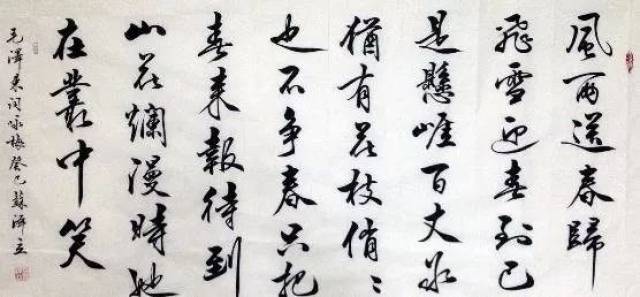 風雨送春歸
飛雪迎春到已
是懸崖百丈冰
猶有花枝俏〻
也不争春只把
春来報待到
山花爛漫時她
在叢中笑
毛澤東词咏梅癸巳蘇澤立